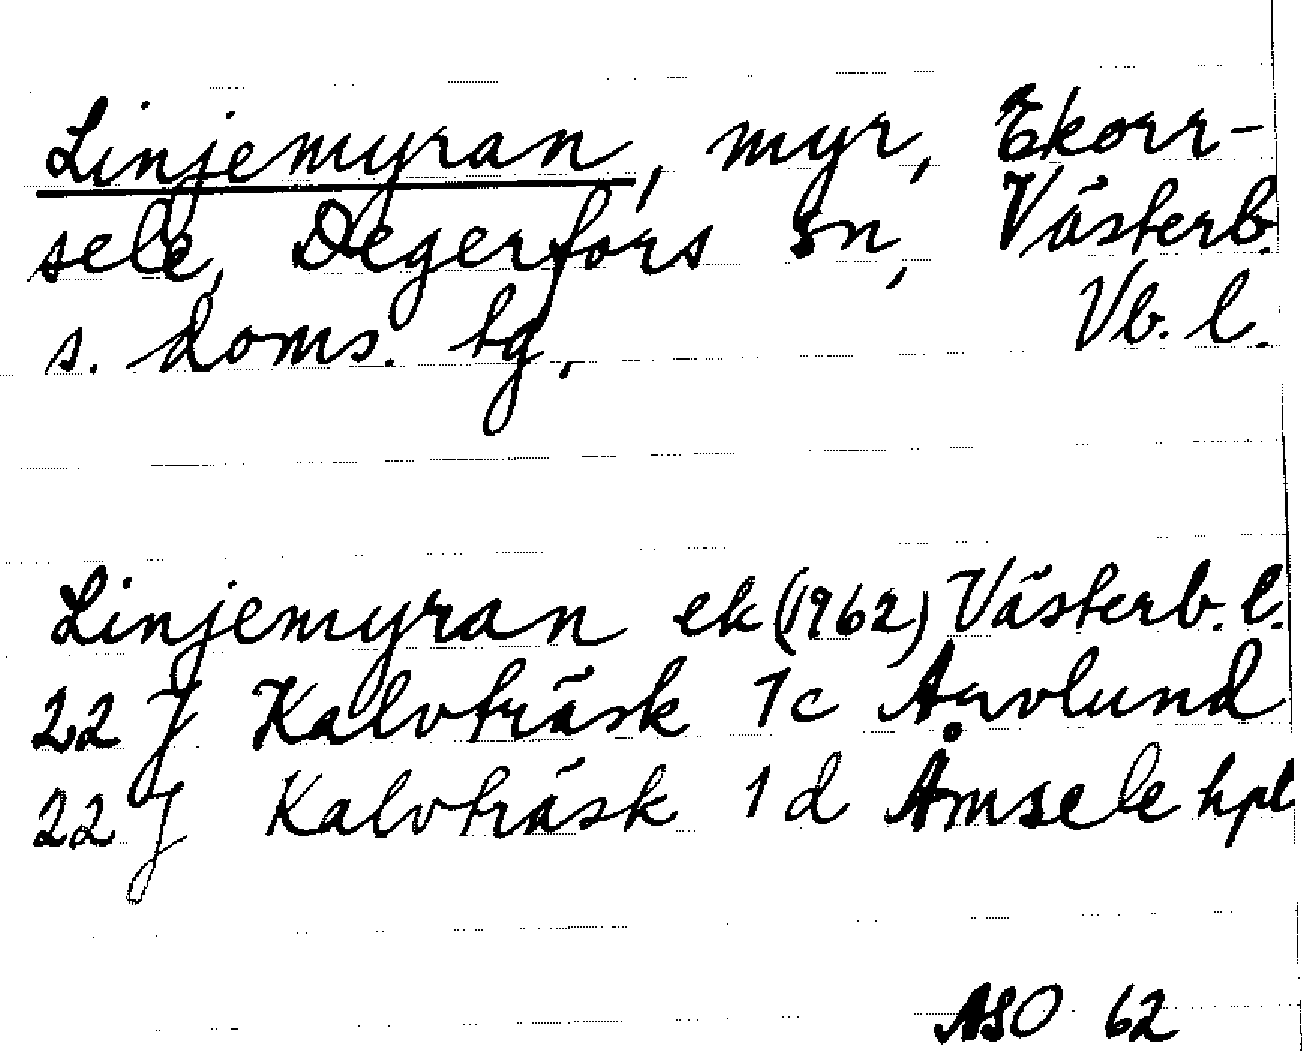 Linjemyran, myr, Ekorr-
sele, Degerfors sn, Västerb.
s. doms. tg, Vb. l.
Linjemyran ek (1962) Västerb. l.
22 J Kalvträsk 1c Arvlund
22 J Kalvträsk 1d Åmsele hpl
ASO 62